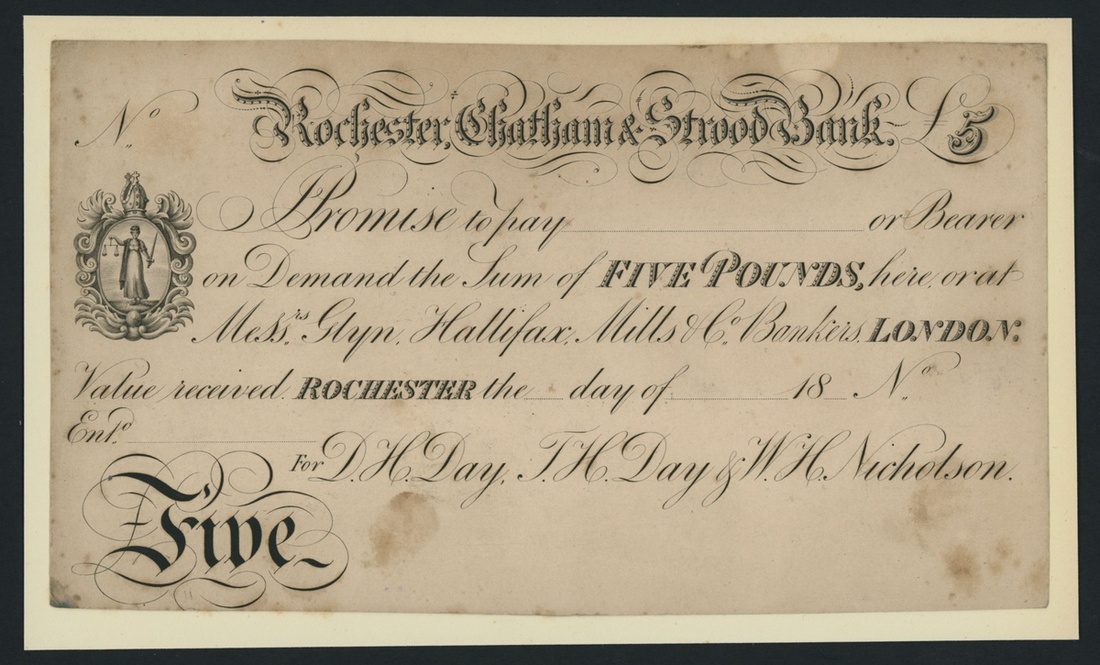 No. Rochester, Chatham & Strood Bank. £5
I Promise to pay or Bearer
on Demand the Sum of FIVE POUNDS, here, or at
Messrs. Glyn, Hallifax, Mills & Co. Bankers, LONDON.
Value received. ROCHESTER the day of 18 No.
Entd.
For D. H. Day, T. H. Day & W. H. Nicholson.
Five